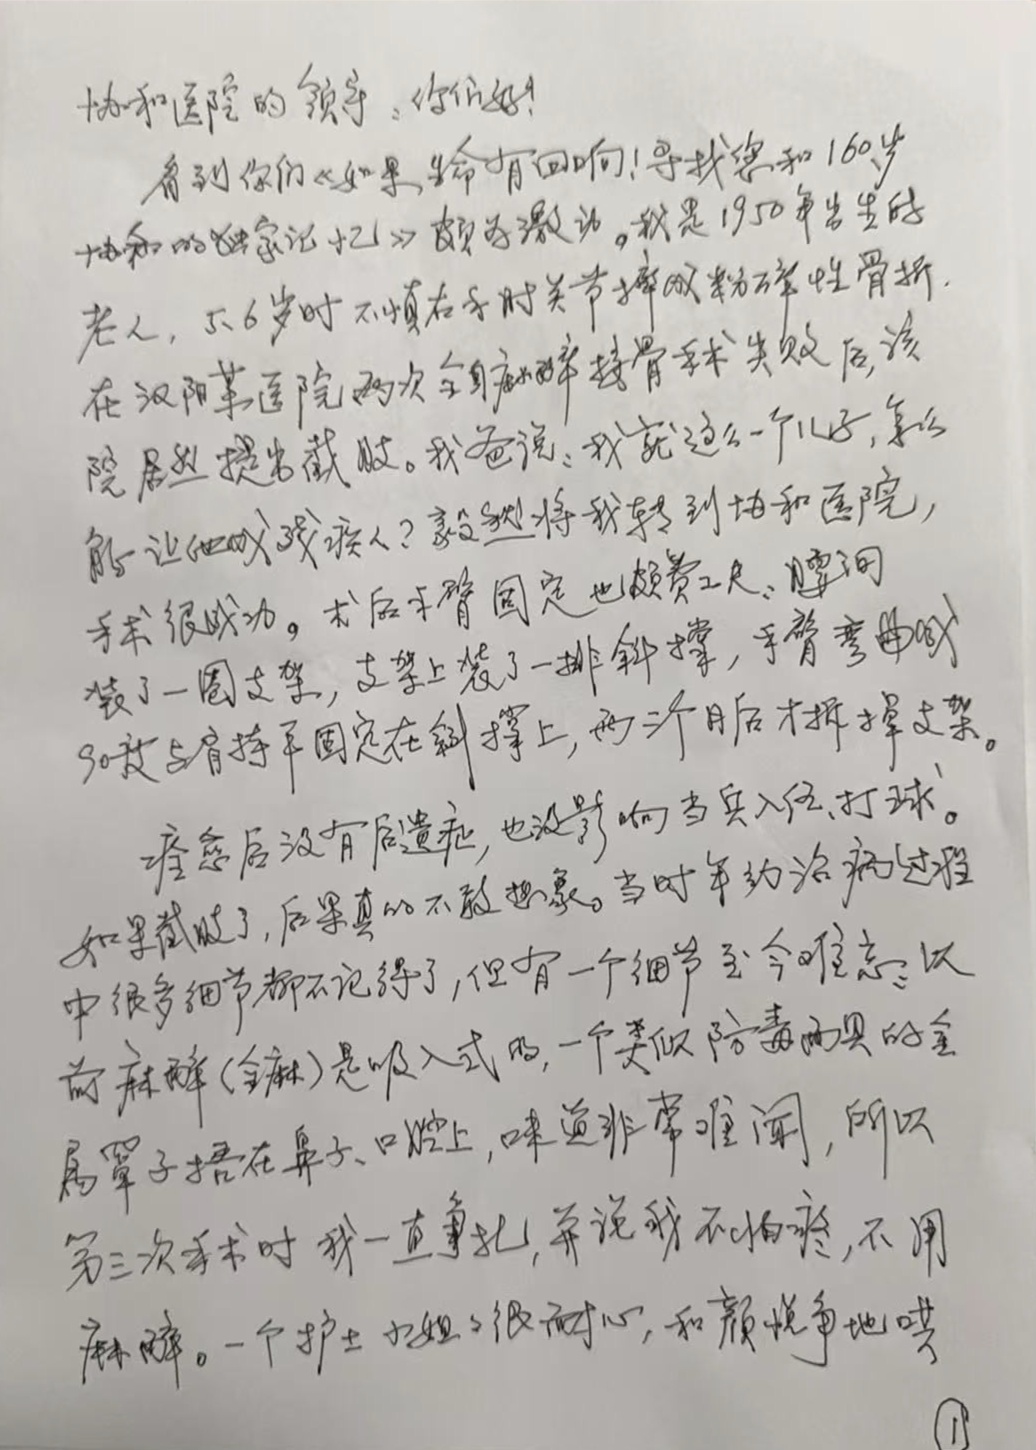 协和医院的领导:你们好!
看到你们《如果生命有回响!寻找您和160岁
协和的独家记忆》颇为激动。我是1950年出生的
老人,5、6岁时不慎右手肘关节摔成粉碎性骨折.
在汉阳某医院两次全身麻醉接骨手术失败后,该
院居然提出截肢。我爸说:我就这么一个儿子,怎么
能让他成残疾人?毅然将我转到协和医院,
手术很成功。术后手臂固定也颇费工夫:腰间
装了一圈支架,支架上装了一排斜撑,手臂弯曲成
90度与肩持平固定在斜撑上,两三个月后才拆掉支架。
痊愈后没有后遗症,也没影响当兵入伍、打球。
如果截肢了,后果真的不敢想象。当时年幼治病过程
中很多细节都不记得了,但有一个细节至今难忘:以
前麻醉(全麻)是吸入式的,一个类似防毒面具的金
属罩子捂在鼻子、口腔上,味道非常难闻,所以
第三次手术时我一直挣扎,并说我不怕疼,不用
麻醉。一个护士小姐姐很耐心,和颜悦色地哄
1